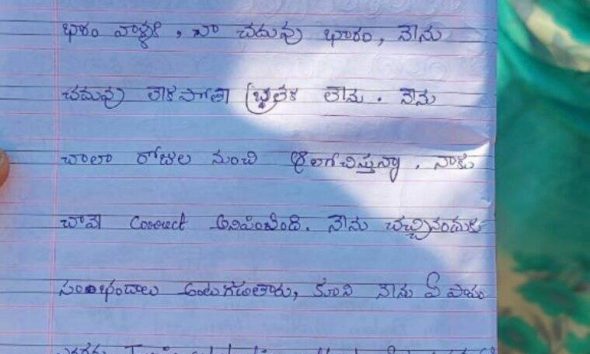 భారం వాళ్ళకి, నా చదువు భారం, నేను
చదువు లేకపోతా బ్రతక లేను. నేను
చాలా రోజుల నుంచి ఆలగోచిస్తున్నా. నాకు
చావే Correct అనిపించింది. నేను చచ్చినందుకు
అంటగడుతారు, కాని నేను ఏ పాపం